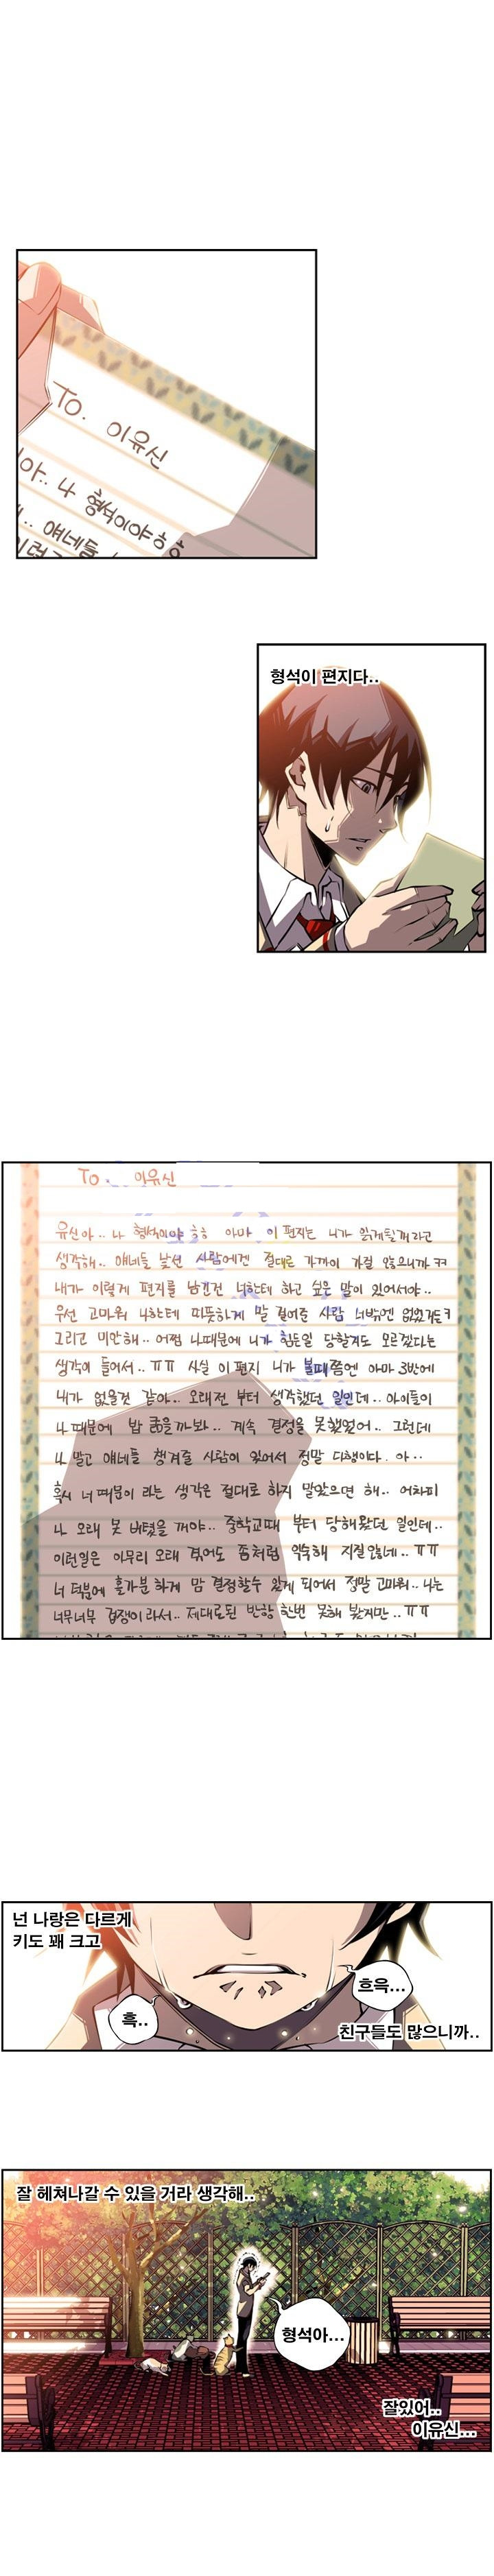 TO. 이유신
아.. 나 형석이야 ㅎㅎ
.. 얘네들
형석이 편지다..
TO. 이유신
유신아.. 나 형석이야 ㅎㅎ 아마 이 편지는 니가 읽게될꺼라고
생각해.. 얘네들 낯선 사람에겐 절대로 가까이 가질 않으니까 ㅋㅋ
내가 이렇게 편지를 남긴건 너한테 하고 싶은 말이 있어서야..
우선 고마워 나한테 따뜻하게 말 걸어준 사람 너밖엔 없었거든
그리고 미안해.. 어쩜 나때문에 니가 힘든일 당할지도 모르겠다는
생각이 들어서.. ㅠㅠ 사실 이 편지 니가 볼때쯤엔 아마 3반에
내가 없을것 같아.. 오래전 부터 생각했던 일인데.. 아이들이
나 때문에 밥 굶을까봐.. 계속 결정을 못했었어.. 그런데
나 말고 얘네들 챙겨줄 사람이 있어서 정말 다행이다. 아..
혹시 너 때문이 라는 생각은 절대로 하지 말았으면 해.. 어차피
나 오래 못 버텼을 꺼야.. 중학교때 부터 당해왔던 일인데..
이런일은 아무리 오래 겪어도 좀처럼 익숙해 지질않네.. ㅠㅠ
너 덕분에 홀가분하게 맘 결정할수 있게 되어서 정말 고마워.. 나는
너무너무 겁쟁이라서.. 제대로된 반항 한번 못해 봤지만.. ㅠㅠ
넌 나랑은 다르게
키도 꽤 크고
흑..
흐윽...
친구들도 많으니까..
잘 헤쳐나갈 수 있을 거라 생각해..
형석아...
잘있어..
이유신...